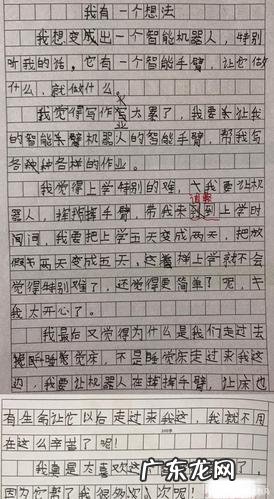 我有一个想法
我想变成出一个智能机器人，特别
听我的话，它有一个智能手臂，让它做
什么，就做什么。
我觉得写作业太累了，我要让我
的智能机器人的智能手臂，帮我写
各种各样的作业。
我觉得上学特别的难，我要让机
器人，挥挥手臂，带我来到上学时
间河，我要把上学五天变成两天，把放
假两天变成五天，这样上学就不会
觉得特别难了，还觉得更简单了呢，
我太开心了。
我最后又觉得为什么是我们走过去
睡觉床，不是睡觉床走过来我这
边，我要让机器人在挥挥手臂，让床也
有生命让它以后走过来我这，我就不用
在这么辛苦了呢！
我真是太喜欢这
因为它帮了我很多
广东龙网